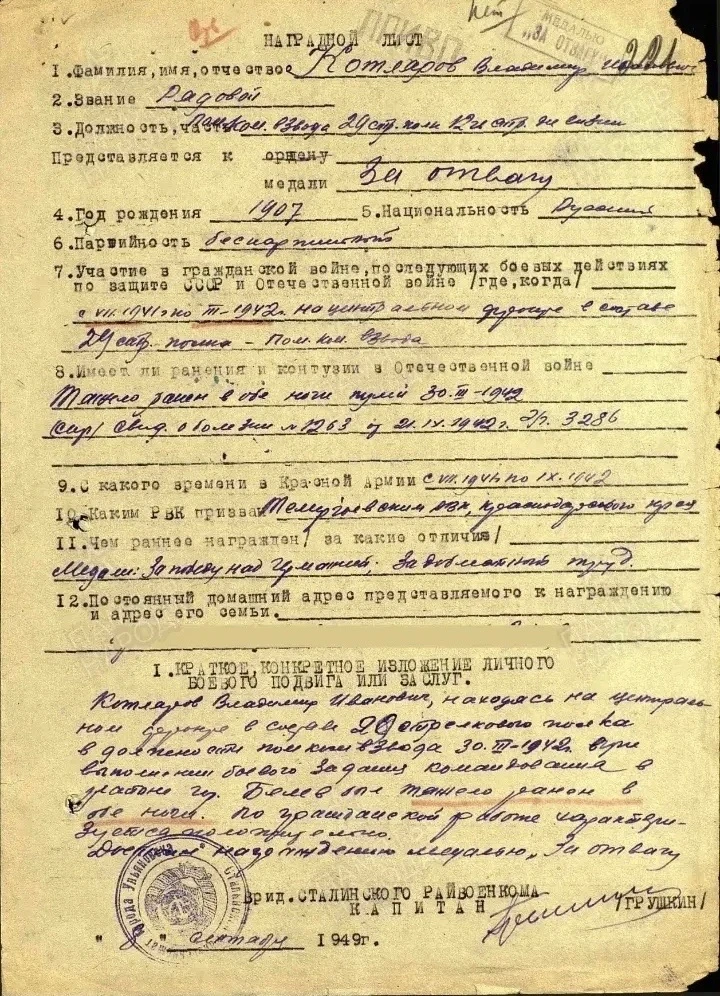 МЕДАЛЬЮ
"ЗА ОТВАГУ"
НАГРАДНОЙ ЛИСТ
1.Фамилия,имя,отчество Котларов Владимир Иванович
2.Звание Рядовой
3.Должность,часть Пом.ком. взвода 29 стр. полк 12й стр. дивизии
Представляется к ордену
медали За отвагу
4.Год рождения 1907 5.Национальность Русский
6.Партийность беспартийный
7.Участие в гражданской войне,последующих боевых действиях
по защите СССР и Отечественной войне /где,когда/
с VII.1941г по III-1942г. на центральном фронте в составе
29 стр. полка - Пом. ком. взвода
8.Имеет ли ранения и контузии в Отечественной войне
Тяжело ранен в обе ноги пулей 30.III-1942
Свид. о болезни №1263 от 21.IX.1942г. 3286
9.С какого времени в Красной Армии с VII.1941г по IX.1942
10.Каким РВК призван Темрюкским РВК, Краснодарского края
11.Чем раннее награжден/ за какие отличия/
Медали: За победу над Германией; За доблестный труд.
12.Постоянный домашний адрес представляемого к награждению
и адрес его семьи.
I.КРАТКОЕ,КОНКРЕТНОЕ ИЗЛОЖЕНИЕ ЛИЧНОГО
БОЕВОГО ПОДВИГА ИЛИ ЗАСЛУГ.
Котларов Владимир Иванович, находясь на централь-
ном фронте в составе 29 стрелкового полка
в должности пом ком взвода 30.III-1942г. при
выполнении боевого задания командования в
районе гор. Белев был тяжело ранен в
обе ноги. По гражданской работе характери-
зуется положительно.
Достоин награждению медалью „За отвагу
Врид.СТАЛИНСКОГО РАЙВОЕНКОМА
КАПИТАН /ГРУШКИН/
" " 1949г.